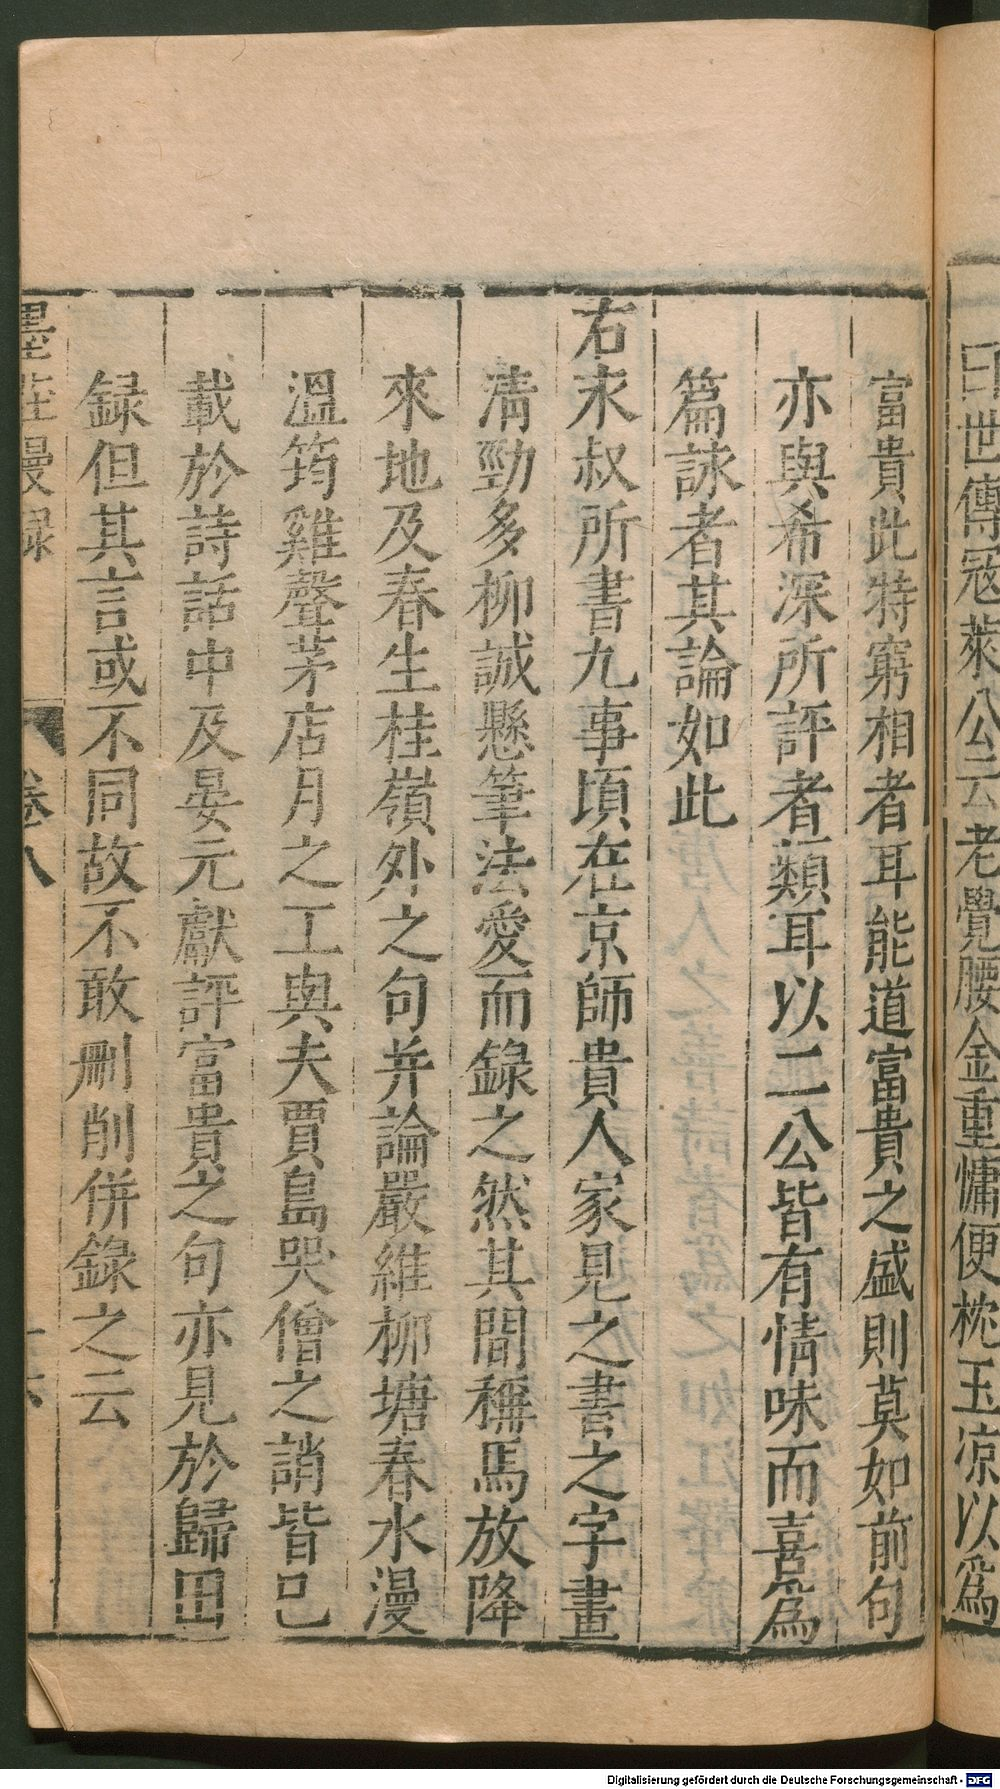 曰世傳冦萊公云老覺腰金重慵便枕玉凉以爲
富貴此特窮相者耳能道富貴之盛則莫如前句
亦與希深所評者類耳以二公皆有情味而喜爲
篇詠者其論如此
右永叔所書九事頃在京師貴人家見之書之字畫
淸勁多柳誠懸筆法愛而錄之然其間稱馬放降
來地及春生桂嶺外之句并論嚴維柳塘春水漫
溫筠雞聲茅店月之工與夫賈島哭僧之誚皆已
載於詩話中及晏元獻評富貴之句亦見於歸田
録但其言或不同故不敢刪削併錄之云
墨莊漫録 卷八 十六
Digitalisierung gefördert durch die Deutsche Forschungsgemeinschaft - DFG